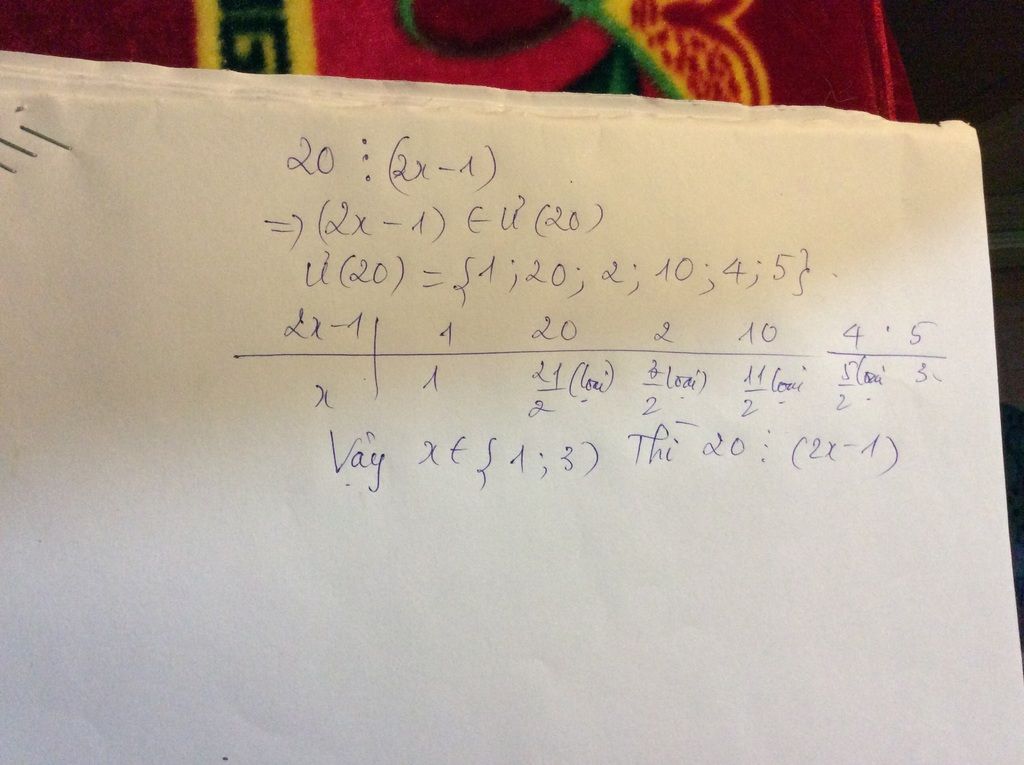 20 ⋮ (2x-1)
=> (2x-1) ∈ Ư(20)
Ư(20) = {1; 20; 2; 10; 4; 5}.
2x-1 | 1 20 2 10 4 5
x | 1 21/2 (loại) 3/2 loại) 11/2 loại 5/2 (loại 3
Vậy x ∈ {1; 3) Thì 20 ⋮ (2x-1)